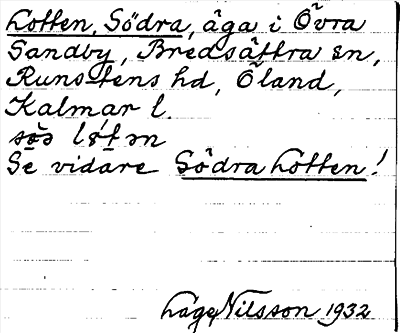 Lotten, Södra, äga i Övra
Sandby, Bredsättra sn,
Runstens hd, Öland,
Kalmar l.
Se vidare Södra Lotten!
Lage Nilsson 1932